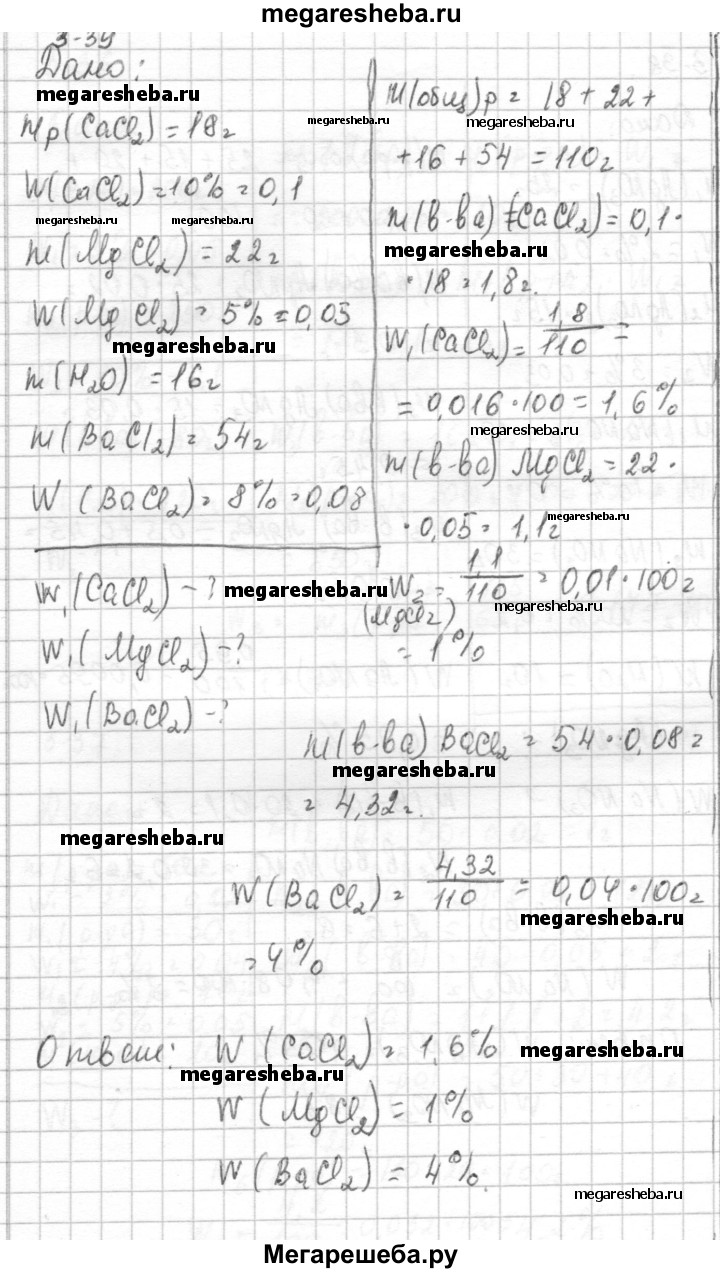 megaresheba.ru
3-39
Дано:
megaresheba.ru
mр(CaCl2) = 18г
W(CaCl2) = 10% = 0,1
megaresheba.ru megaresheba.ru
m(MgCl2) = 22г
W(MgCl2) = 5% = 0,05
megaresheba.ru
m(H2O) = 16г
m(BaCl2) = 54г
W(BaCl2) = 8% = 0,08
W1(CaCl2) - ?
megaresheba.ru
W1(MgCl2) - ?
W1(BaCl2) - ?
m(общ)р = 18 + 22 +
megaresheba.ru megaresheba.ru
+ 16 + 54 = 110г
m(в-ва) (CaCl2) = 0,1 ·
megaresheba.ru
· 18 = 1,8г.
W1(CaCl2) = 1,8/110 =
= 0,016 · 100 = 1,6%
megaresheba.ru
m(в-ва) MgCl2 = 22 ·
megaresheba.ru
· 0,05 = 1,1г
W2 = 1,1/110 = 0,01 · 100 =
megaresheba.ru
(MgCl2)
= 1%
m(в-ва) BaCl2 = 54 · 0,08 =
megaresheba.ru
= 4,32г.
megaresheba.ru
W(BaCl2) = 4,32/110 = 0,04 · 100 =
megaresheba.ru
= 4%
Ответ: W(CaCl2) = 1,6%
megaresheba.ru
megaresheba.ru
W(MgCl2) = 1%
W(BaCl2) = 4%.
megaresheba.ru
Мегарешеба.ру